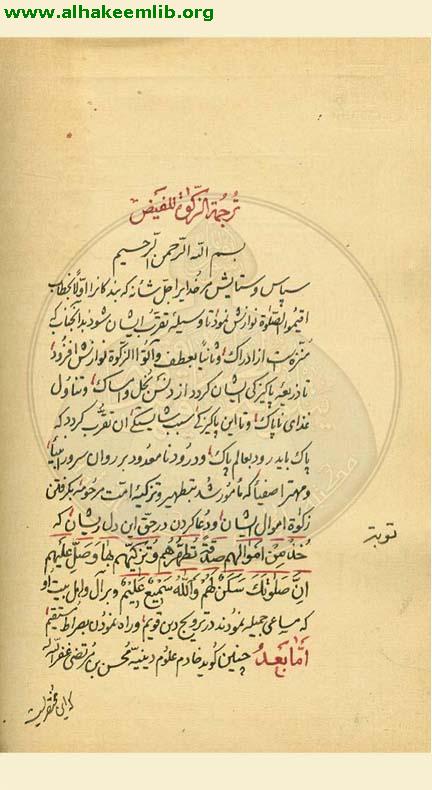 www.alhakeemlib.org
ترجمة الزكوة للفيض
بسم الله الرحمن الرحيم
سپاس و ستایش مر خدایرا جل شانه که بندکانرا اولا بخطاب
اقیموا الصلوة نوازش نمود تا وسیله تقرب ایشان شود بدانجناب که
منزه است از ادراک و ثانیا بعطف و آتوا الزکوة نوازش افزود
تا ذریعه پاکیزکی ایشان کردد از دنس بخل و امساک و تناول
غذای ناپاک و تا این پاکیزکی سبب شایستکی ان تقرب کردد که
پاک باید رود بعالم پاک و درود نامعدود بر روان سرور انبیا
و مهتر اصفیا که مامور شد بتطهیر و تزکیه امت مرحومه بکرفتن
زکوة اموال ایشان و دعا کردن در حق ان دل ریشان که
خذ من اموالهم صدقة تطهرهم و تزکیهم بها و صل علیهم
توبه
ان صلوتک سکن لهم والله سمیع علیم و بر ال و اهل بیت او
که مساعی جمیله نمودند در ترویج دین قویم و راه نمودن بصراط مستقیم
اما بعد چنین کوید خادم علوم دینیه محسن بن مرتضی غفر الله
که این مختصریست